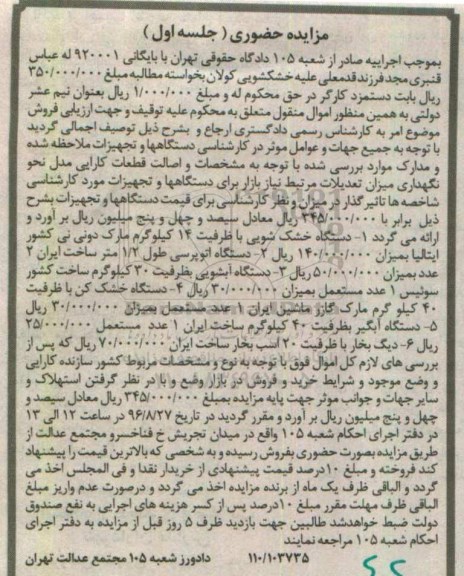 مزایده حضوری ( جلسه اول )
بموجب اجراییه صادر از شعبه ۱۰۵ دادگاه حقوقی تهران با بایگانی ۹۲۰۰۰۱ له عباس
قنبری مجد فرزند قدمعلی علیه خشکشویی کولان بخواسته مطالبه مبلغ ۳۵۰/۰۰۰/۰۰۰
ریال بابت دستمزد کارگر در حق محکوم له و مبلغ ۱/۰۰۰/۰۰۰ ریال بعنوان نیم عشر
دولتی به همین منظور اموال منقول متعلق به محکوم علیه توقیف و جهت ارزیابی فروش
موضوع امر به کارشناس رسمی دادگستری ارجاع و بشرح ذیل توصیف اجمالی گردید
با توجه به جمیع جهات و عوامل موثر در کارشناسی دستگاهها و تجهیزات ملاحظه شده
و مدارک موارد بررسی شده با توجه به مشخصات و اصالت قطعات کارایی مدل نحو
نگهداری میزان تعدیلات مرتبط نیاز بازار برای دستگاهها و تجهیزات مورد کارشناسی
شاخصه ها تاثیر گذار در میزان و نظر کارشناسی برای قیمت دستگاهها و تجهیزات بشرح
ذیل برابر با ۳۴۵/۰۰۰/۰۰۰ ریال معادل سیصد و چهل و پنج میلیون ریال بر آورد و
ارائه می گردد ۱- دستگاه خشک شویی با ظرفیت ۱۴ کیلوگرم مارک دونی نی کشور
ایتالیا بمیزان ۱۴۰/۰۰۰/۰۰۰ ریال ۲- دستگاه اتوپرسی طول ۱/۲ متر ساخت ایران ۲
عدد بمیزان ۵۰/۰۰۰/۰۰۰ ریال ۳- دستگاه آبشویی بظرفیت ۳۰ کیلوگرم ساخت کشور
سوئیس ۱ عدد مستعمل بمیزان ۳۰/۰۰۰/۰۰۰ ریال ۴- دستگاه خشک کن با ظرفیت
۴۰ کیلو گرم مارک گازر ماشین ایران ۱ عدد مستعمل بمیزان ۳۰/۰۰۰/۰۰۰ ریال
۵- دستگاه آبگیر بظرفیت ۴۰ کیلوگرم ساخت ایران ۱ عدد مستعمل ۲۵/۰۰۰/۰۰۰
ریال ۶- دیگ بخار با ظرفیت ۲۰ اسب بخار ساخت ایران ۷۰/۰۰۰/۰۰۰ ریال که پس از
بررسی های لازم کل اموال فوق با توجه به نوع و مشخصات مربوط کشور سازنده کارایی
و وضع موجود و شرایط خرید و فروش در بازار وضع و با در نظر گرفتن استهلاک و
سایر جهات و جوانب موثر جهت پایه مزایده بمبلغ ۳۴۵/۰۰۰/۰۰۰ ریال معادل سیصد و
چهل و پنج میلیون ریال بر آورد و مقرر گردید در تاریخ ۹۶/۸/۲۷ در ساعت ۱۲ الی ۱۳
در دفتر اجرای احکام شعبه ۱۰۵ واقع در میدان تجریش خ فناخسرو مجتمع عدالت از
طریق مزایده بصورت حضوری بفروش رسیده و به شخصی که بالاترین قیمت را پیشنهاد
کند فروخته و مبلغ ۱۰ درصد قیمت پیشنهادی از خریدار نقدا و فی المجلس اخذ می
گردد و الباقی ظرف یک ماه از برنده مزایده اخذ می گردد و درصورت عدم واریز مبلغ
الباقی ظرف مهلت مقرر مبلغ ۱۰درصد پس از کسر هزینه های اجرایی به نفع صندوق
دولت ضبط خواهدشد طالبین جهت بازدید ظرف ۵ روز قبل از مزایده به دفتر اجرای
احکام شعبه ۱۰۵ مراجعه نمایند
۱۱۰/۱۰۳۷۳۵ دادورز شعبه ۱۰۵ مجتمع عدالت تهران